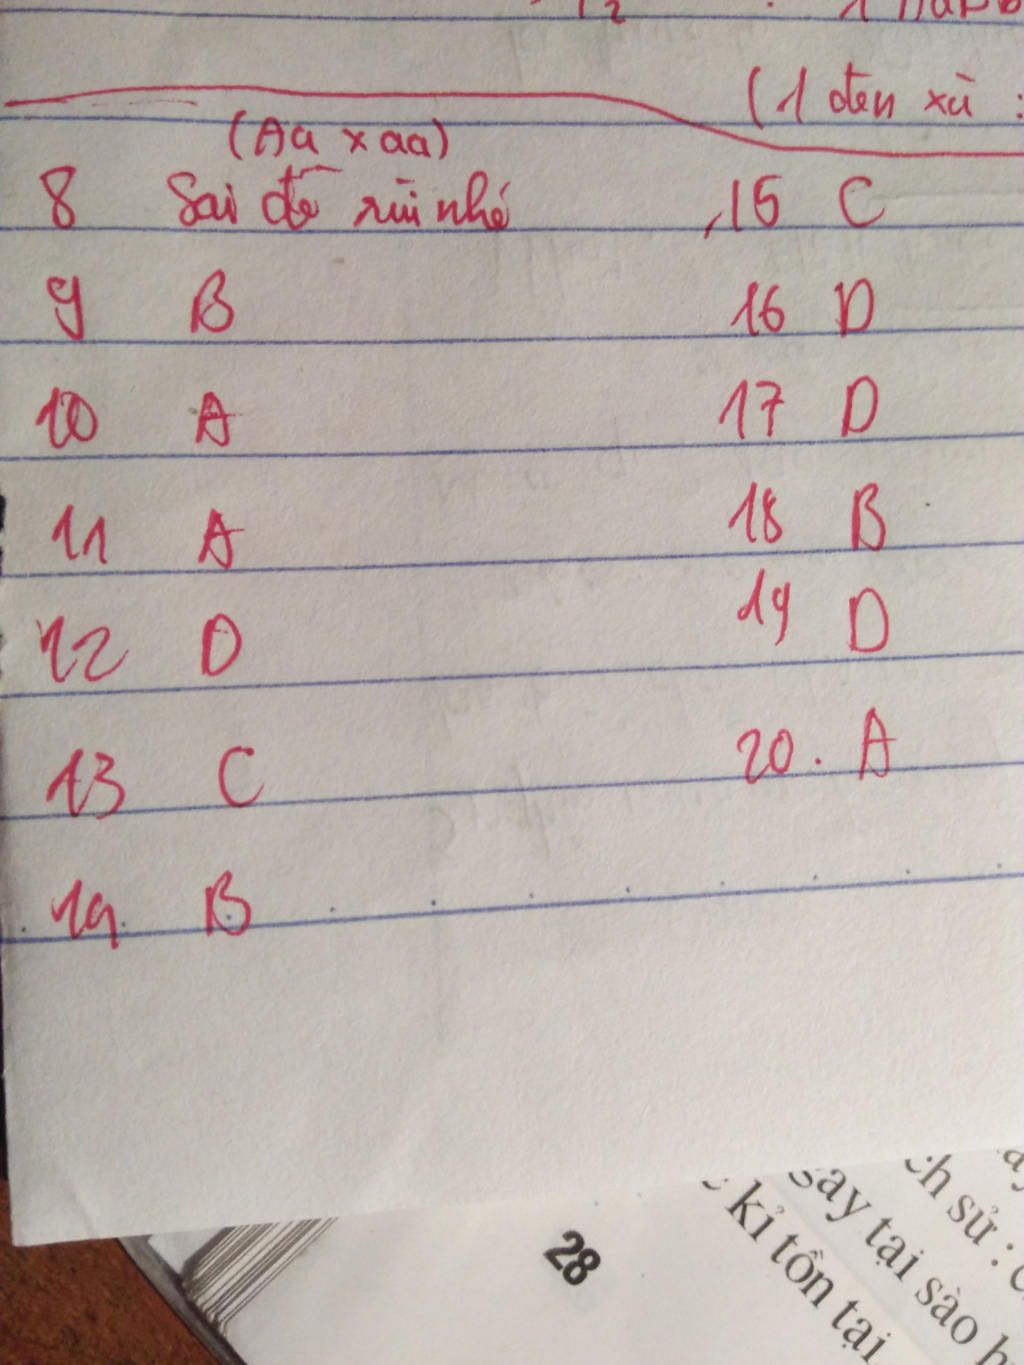 (1 đen xù :
(Aa x aa)
8 Sai đề rùi nhé
15 C
9 B
16 D
10 A
17 D
11 A
18 B
12 D
19 D
13 C
20. A
14. B
28
kỉ tồn tại
say tại sào
ch sử :